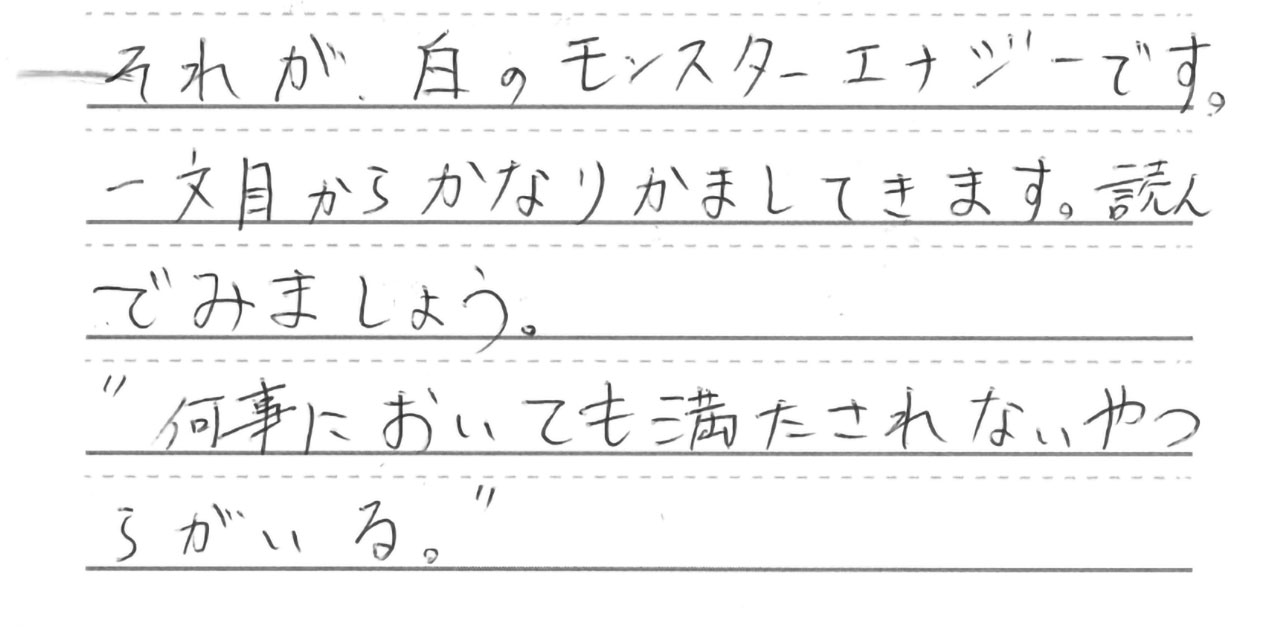 それが、白のモンスターエナジーです。
一文目からかなりかましてきます。読ん
でみましょう。
"何事においても満たされないやつ
らがいる。"